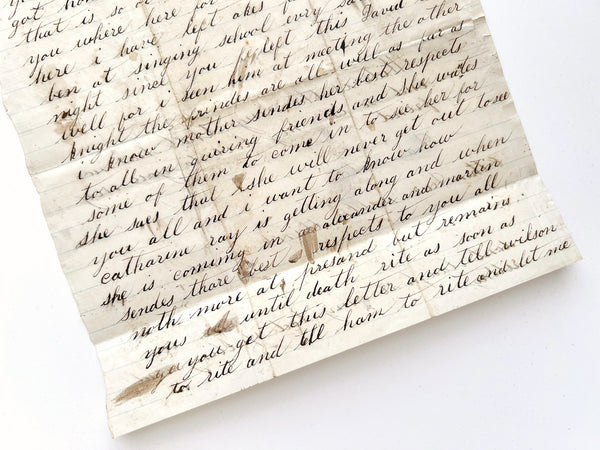 got hom
that is so
you where here for
here i have left akes for
ben at singing school evry sa
night since you left this David
well for i seen him at meeting the other
knight the frindes are all well as fur as
i know mother sendes her best respects
to all in quiring friends and she wates
some of them to come in to see her for
she saes that she will never get out to see
you all and i want to know how
catharine ray is getting along and when
she is comimg in alexander and martin
sendes thare best respects to you all
noth more at presand but remains
yous until death rite as soon as
you get this letter and tell wilson
to rite and tell ham to rite and let me